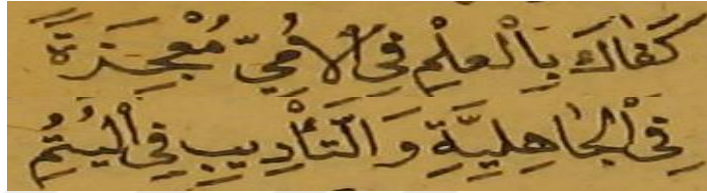 كَفَاكَ بِالْعِلْمِ فِي الْأُمِّيِّ مُعْجِزَةً
فِي الْجَاهِلِيَّةِ وَالتَّأْدِيبِ فِي الْيُتُمِ